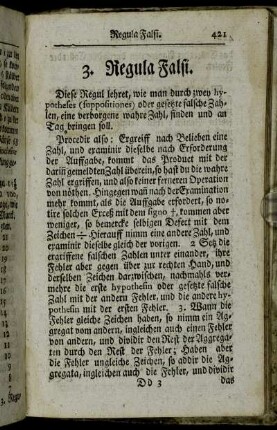 Regula Falsi. 421
3. Regula Falsi.
Diese Regul lehret, wie man durch zwey hy-
potheses (suppositiones) oder gesetzte falsche Zah-
len, eine verborgene wahre Zahl, finden und an
Tag bringen soll.
Procedir also: Ergreiff nach Belieben eine
Zahl, und examinir dieselbe nach Erforderung
der Auffgabe, kommt das Product mit der
darin gemeldten Zahl überein, so hast du die wahre
Zahl ergriffen, und also keiner ferneren Operation
von nöthen. Hingegen wañ nach der Examination
mehr kommt, als die Auffgabe erfordert, so no-
tire solchen Excess mit dem signo †, kommen aber
weniger, so bemercke selbigen Defect mit dem
Zeichen ÷ Hierauff nimm eine andere Zahl, und
examinir dieselbe gleich der vorigen. 2 Setz die
ergriffene falschen Zahlen unter einander, ihre
Fehler aber gegen über zur rechten Hand, und
derselben Zeichen darzwischen, nachmahls ver-
mehre die erste hypothesin oder gesetzte falsche
Zahl mit der andern Fehler, und die andere hy-
pothesin mit der ersten Fehler. 3. Wann die
Fehler gleiche Zeichen haben, so nimm ein Ag-
gregat von andern, ingleichen auch einen Fehler
von andern, und dividir den Rest der Aggrega-
ten durch den Rest der Fehler; Haben aber
die Fehler ungleiche Zeichen, so addir die Ag-
gregata, ingleichen auch die Fehler, und dividir
Dd 3 das